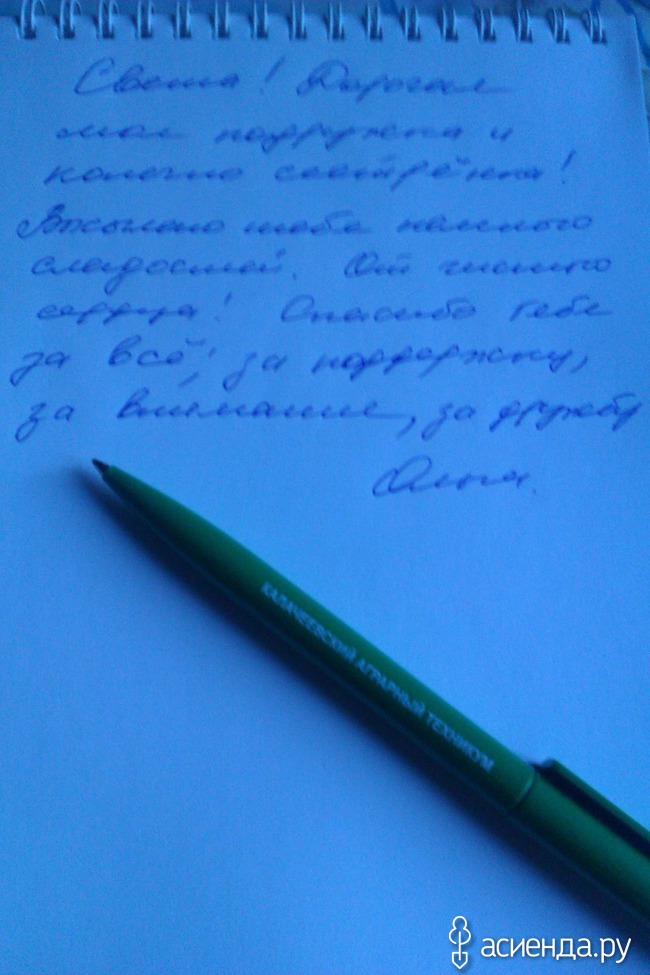 Света! Дорогая
моя поддержка и
конечно сестрёнка!
Высылаю тебе немного
сладостей. От чистого
сердца! Спасибо тебе
за всё, за поддержку,
за внимание, за дружбу
Ольга.
КАЛАЧЕЕВСКИЙ АГРАРНЫЙ ТЕХНИКУМ
асиенда.ру